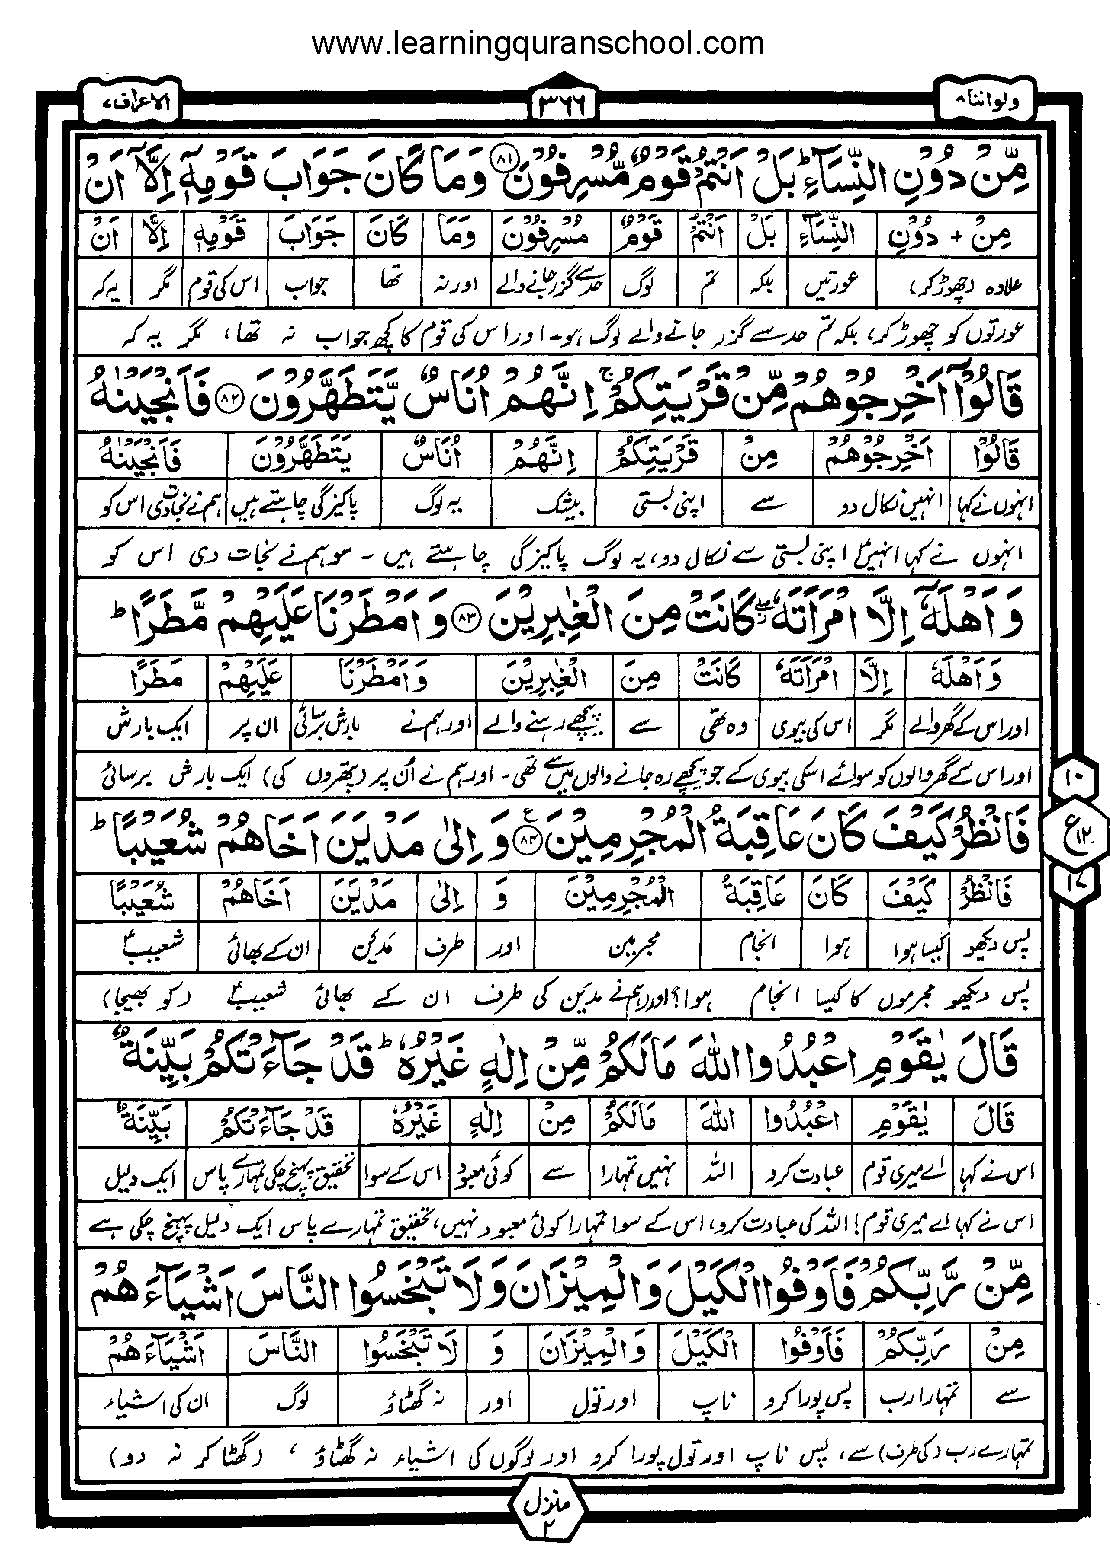 www.learningquranschool.com
ولواننا ۸ ۳۶۶ الاعراف ۷
مِّنْ دُوْنِ النِّسَآءِ ؕ بَلْ اَنْتُمْ قَوْمٌ مُّسْرِفُوْنَ ﴿۸۱﴾ وَمَا كَانَ جَوَابَ قَوْمِهٖۤ اِلَّاۤ اَنْ
مِنْ + دُوْنِ النِّسَآءِ بَلْ اَنْتُمْ قَوْمٌ مُسْرِفُوْنَ وَمَا كَانَ جَوَابَ قَوْمِهٖ اِلَّا اَنْ
علاوہ (چھوڑ کر) عورتیں بلکہ تم لوگ حد سے گزر جانے والے اور نہ تھا جواب اس کی قوم مگر یہ کہ
عورتوں کو چھوڑ کر، بلکہ تم حد سے گزر جانے والے لوگ ہو۔ اور اس کی قوم کا کچھ جواب نہ تھا، مگر یہ کہ
قَالُوْۤا اَخْرِجُوْهُمْ مِّنْ قَرْيَتِكُمْ ۚ اِنَّهُمْ اُنَاسٌ يَّتَطَهَّرُوْنَ ﴿۸۲﴾ فَاَنْجَيْنٰهُ
قَالُوْا اَخْرِجُوْهُمْ مِنْ قَرْيَتِكُمْ اِنَّهُمْ اُنَاسٌ يَتَطَهَّرُوْنَ فَاَنْجَيْنٰهُ
انہوں نے کہا انہیں نکال دو سے اپنی بستی بیشک یہ لوگ پاکیزگی چاہتے ہیں ہم نے نجات دی اس کو
انہوں نے کہا انہیں اپنی بستی سے نکال دو، یہ لوگ پاکیزگی چاہتے ہیں ۔ سو ہم نے نجات دی اس کو
وَاَهْلَهٗۤ اِلَّا امْرَاَتَهٗ ۖ كَانَتْ مِنَ الْغٰبِرِيْنَ ﴿۸۳﴾ وَاَمْطَرْنَا عَلَيْهِمْ مَّطَرًا ؕ
وَاَهْلَهٗ اِلَّا امْرَاَتَهٗ كَانَتْ مِنَ الْغٰبِرِيْنَ وَاَمْطَرْنَا عَلَيْهِمْ مَطَرًا
اور اس کے گھر والے مگر اس کی بیوی وہ تھی سے پیچھے رہنے والے اور ہم نے بارش برسائی ان پر ایک بارش
اور اس کے گھر والوں کو سوائے اسکی بیوی کے جو پیچھے رہ جانے والوں میں سے تھی۔ اور ہم نے اُن پر (پتھروں کی) ایک بارش برسائی
۱۰
فَانْظُرْ كَيْفَ كَانَ عَاقِبَةُ الْمُجْرِمِيْنَ ﴿۸۴﴾ ع وَاِلٰى مَدْيَنَ اَخَاهُمْ شُعَيْبًا ؕ
ع ۱۲
فَانْظُرْ كَيْفَ كَانَ عَاقِبَةُ الْمُجْرِمِيْنَ وَ اِلٰى مَدْيَنَ اَخَاهُمْ شُعَيْبًا
۱۷
پس دیکھو کیسا ہوا ہوا انجام مجرمین اور طرف مدین ان کے بھائی شعیبؑ
پس دیکھو مجرموں کا کیسا انجام ہوا؟ اور ہم نے مدین کی طرف ان کے بھائی شعیبؑ (کو بھیجا)
قَالَ يٰقَوْمِ اعْبُدُوا اللّٰهَ مَا لَكُمْ مِّنْ اِلٰهٍ غَيْرُهٗ ؕ قَدْ جَآءَتْكُمْ بَيِّنَةٌ
قَالَ يٰقَوْمِ اعْبُدُوا اللّٰهَ مَالَكُمْ مِنْ اِلٰهٍ غَيْرُهٗ قَدْ جَآءَتْكُمْ بَيِّنَةٌ
اس نے کہا اے میری قوم عبادت کرو اللہ نہیں تمہارا سے کوئی معبود اس کے سوا تحقیق پہنچ چکی تمہارے پاس ایک دلیل
اس نے کہا اے میری قوم! اللہ کی عبادت کرو، اس کے سوا تمہارا کوئی معبود نہیں، تحقیق تمہارے پاس ایک دلیل پہنچ چکی ہے
مِّنْ رَّبِّكُمْ فَاَوْفُوا الْكَيْلَ وَالْمِيْزَانَ وَلَا تَبْخَسُوا النَّاسَ اَشْيَآءَهُمْ
مِنْ رَبِّكُمْ فَاَوْفُوا الْكَيْلَ وَالْمِيْزَانَ وَ لَا تَبْخَسُوا النَّاسَ اَشْيَآءَهُمْ
سے تمہارا رب پس پورا کرو ناپ اور تول اور نہ گھٹاؤ لوگ ان کی اشیاء
تمہارے رب (کی طرف) سے، پس ناپ اور تول پورا کرو اور لوگوں کی اشیاء نہ گھٹاؤ ، (گھٹا کر نہ دو)
منزل ۲